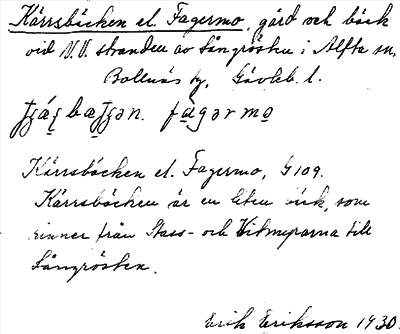 Kärrsbäcken el. Fagermo, gård och bäck
vid N.V. stranden av Långrösten i Alfta sn,
Bollnäs tg, Gävleb. l.
fàgərmo
Kärrsbäcken el. Fagermo, G 109.
Kärrsbäcken är en liten bäck, som
rinner från Stass- och Vitmyrarna till
Långrösten.
Erik Eriksson 1930.